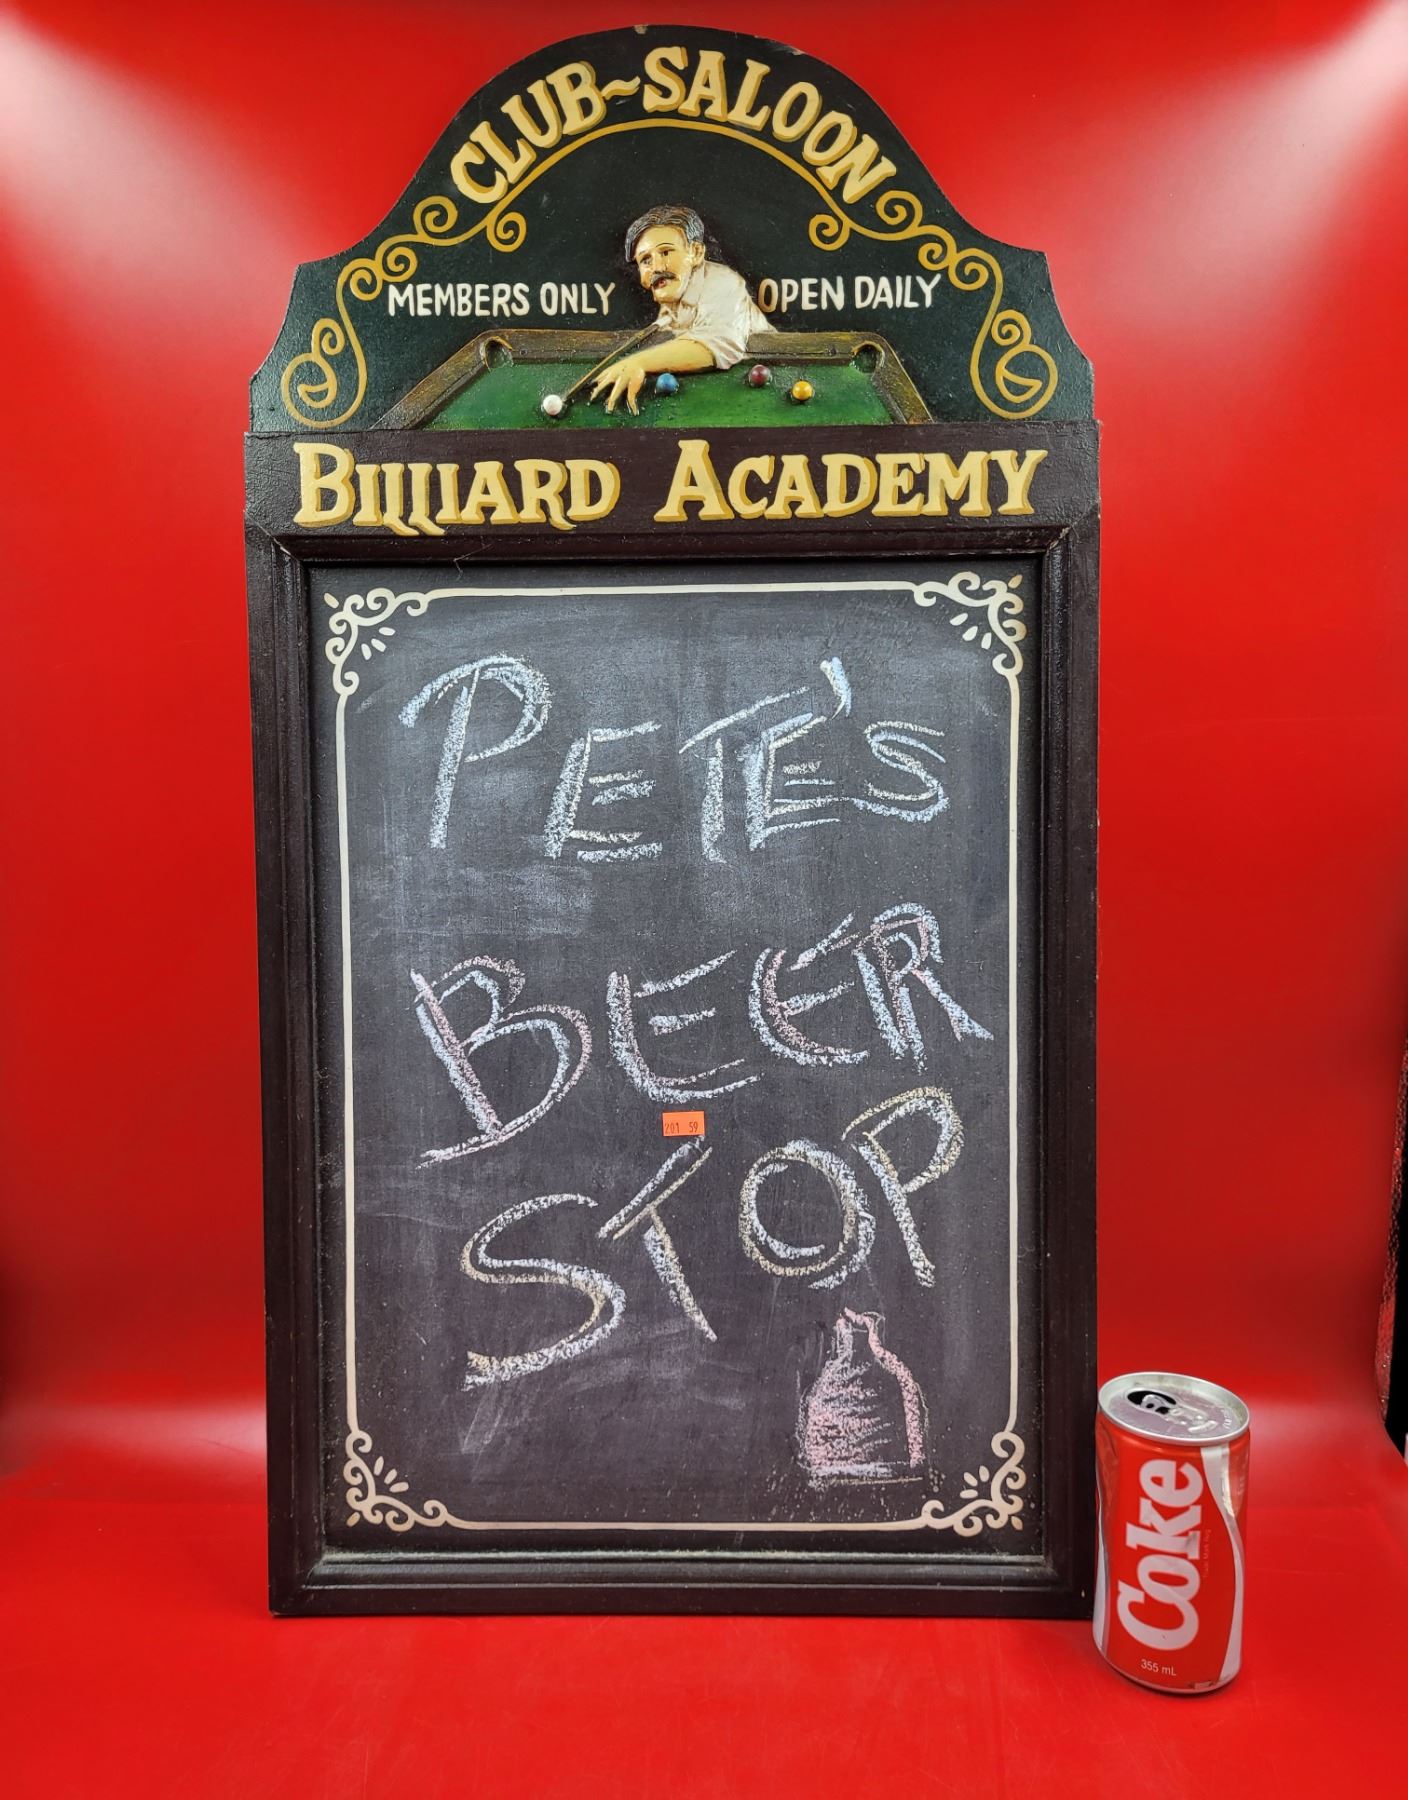 CLUB~SALOON
MEMBERS ONLY OPEN DAILY
BILLIARD ACADEMY
PETE'S
BEER
201 59
STOP
Coke
355 mL